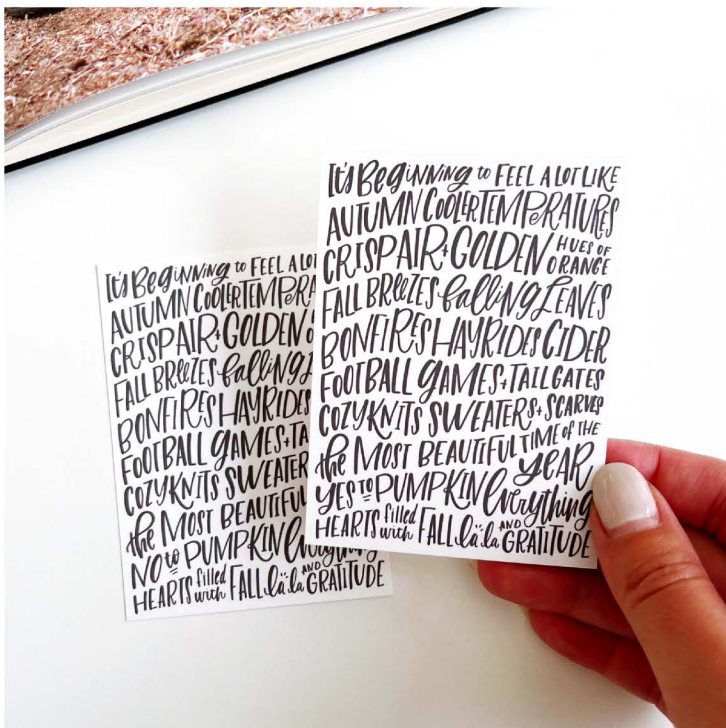 It's Beginning to FEEL A LOT LIKE
AUTUMN COOLER TEMPERATURES
CRISP AIR + GOLDEN HUES OF ORANGE
FALL BREEZES falling LEAVES
BONFIRES HAYRIDES CIDER
FOOTBALL GAMES + TAILGATES
COZY KNITS SWEATERS + SCARVES
the MOST BEAUTIFUL TIME of THE YEAR
YES to PUMPKIN Everything
HEARTS filled with FALL la la AND GRATITUDE
It's Beginning to FEEL A LOT
AUTUMN COOLER TEMPERA
CRISP AIR + GOLDEN
FALL BREEZES falling
BONFIRES HAYRIDES
FOOTBALL GAMES + TA
COZY KNITS SWEATER
the MOST BEAUTIFUL
NO to PUMPKIN Everything
HEARTS filled with FALL la la AND GRATITUDE